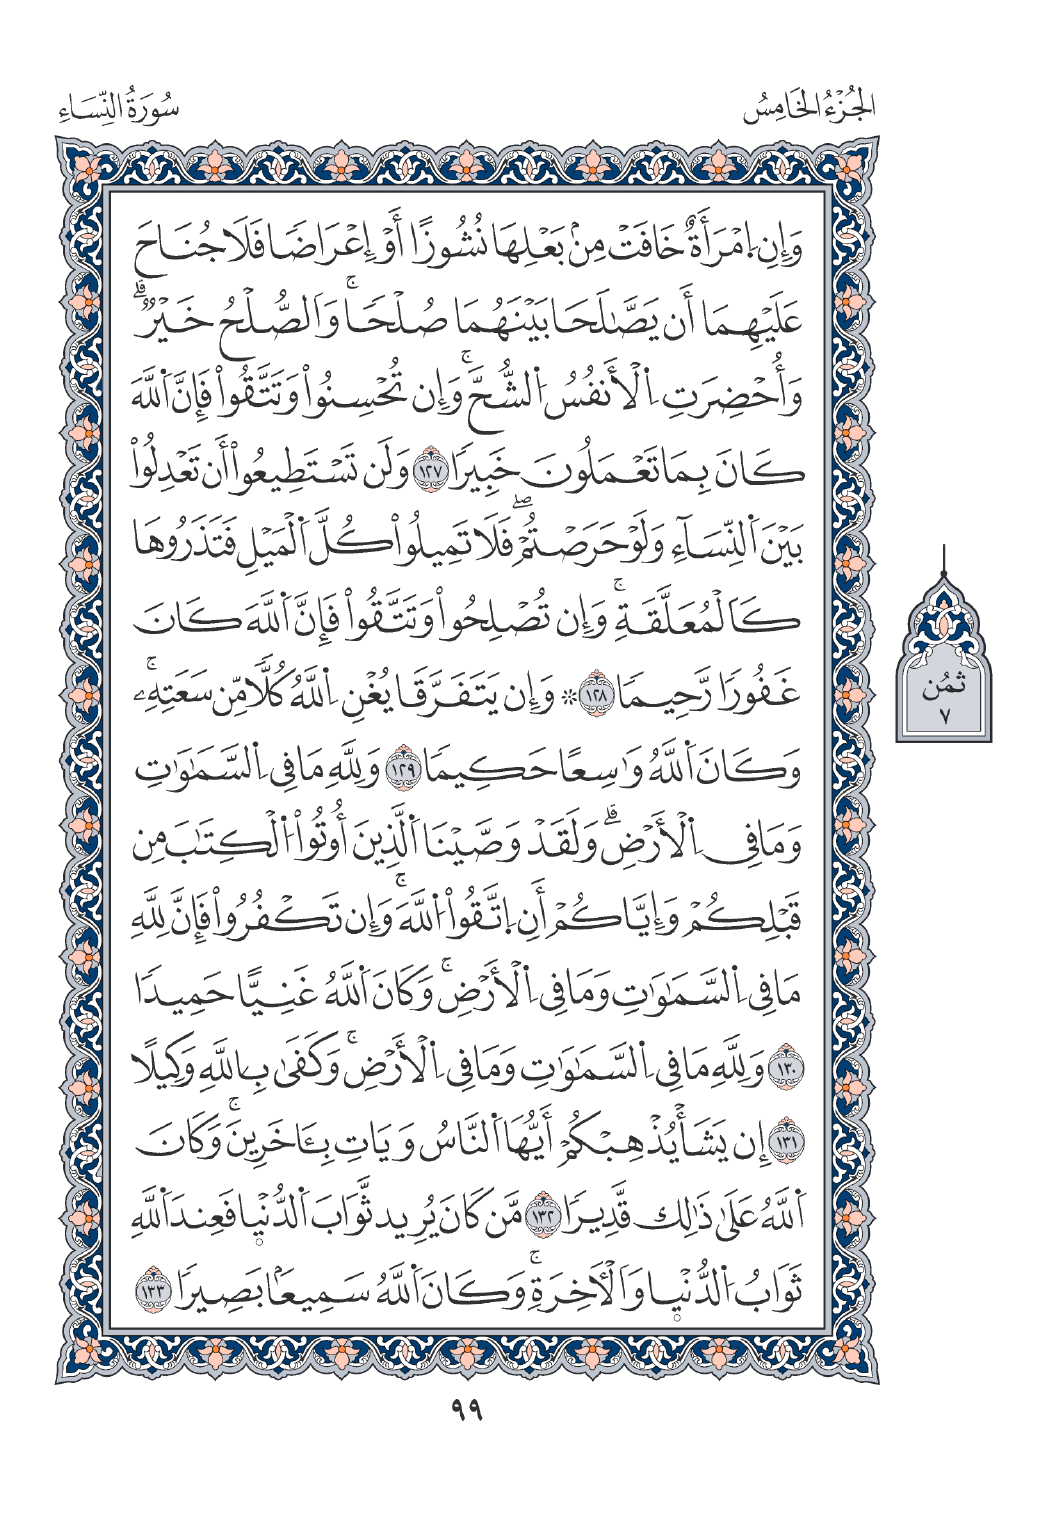 الجُزْءُ الخَامِسُ
سُورَةُ النِّسَاءِ
وَإِنِ اِ۪مْرَأَةٌ خَافَتْ مِنۢ بَعْلِهَا نُشُوزًا أَوْ إِعْرَاضٗا فَلَا جُنَاحَ
عَلَيْهِمَا أَن يَصَّٰلَحَا بَيْنَهُمَا صُلْحٗاۚ وَاَلصُّلْحُ خَيْرٞۗ
وَأُحْضِرَتِ اِ۬لْأَنفُسُ اُ۬لشُّحَّۚ وَإِن تُحْسِنُواْ وَتَتَّقُواْ فَإِنَّ اَ۬للَّهَ
كَانَ بِمَا تَعْمَلُونَ خَبِيرٗا ١٢٧ وَلَن تَسْتَطِيعُواْ أَن تَعْدِلُواْ
بَيْنَ اَ۬لنِّسَآءِ وَلَوْ حَرَصْتُمْۖ فَلَا تَمِيلُواْ كُلَّ اَ۬لْمَيْلِ فَتَذَرُوهَا
كَاَلْمُعَلَّقَةِۚ وَإِن تُصْلِحُواْ وَتَتَّقُواْ فَإِنَّ اَ۬للَّهَ كَانَ
غَفُورٗا رَّحِيمٗا ١٢٨ ۞ وَإِن يَتَفَرَّقَا يُغْنِ اِ۬للَّهُ كُلّٗا مِّن سَعَتِهِۦۚ
وَكَانَ اَ۬للَّهُ وَٰسِعًا حَكِيمٗا ١٢٩ وَلِلَّهِ مَا فِي اِ۬لسَّمَٰوَٰتِ
وَمَا فِي اِ۬لْأَرْضِۗ وَلَقَدْ وَصَّيْنَا اَ۬لَّذِينَ أُوتُواْ اُ۬لْكِتَٰبَ مِن
قَبْلِكُمْ وَإِيَّاكُمْ أَنِ اِ۪تَّقُواْ اُ۬للَّهَۚ وَإِن تَكْفُرُواْ فَإِنَّ لِلَّهِ
مَا فِي اِ۬لسَّمَٰوَٰتِ وَمَا فِي اِ۬لْأَرْضِۚ وَكَانَ اَ۬للَّهُ غَنِيًّا حَمِيدٗا
١٣٠ وَلِلَّهِ مَا فِي اِ۬لسَّمَٰوَٰتِ وَمَا فِي اِ۬لْأَرْضِۚ وَكَفَىٰ بِاللَّهِ وَكِيلًا
١٣١ إِن يَشَأْ يُذْهِبْكُمْ أَيُّهَا اَ۬لنَّاسُ وَيَاتِ بِـَٔاخَرِينَۚ وَكَانَ
اَ۬للَّهُ عَلَىٰ ذَٰلِك قَّدِيرٗا ١٣٢ مَّن كَانَ يُرِيد ثَّوَابَ اَ۬لدُّنْي۪ا فَعِندَ اَ۬للَّهِ
ثَوَابُ اُ۬لدُّنْي۪ا وَاَلْأٓخِرَةِۚ وَكَانَ اَ۬للَّهُ سَمِيعَۢا بَصِيرٗا ١٣٣
ثمُن
٧
٩٩